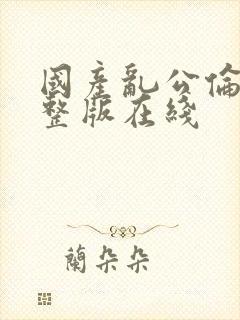 國產亂公倫
整版在綫
蘭朵朵